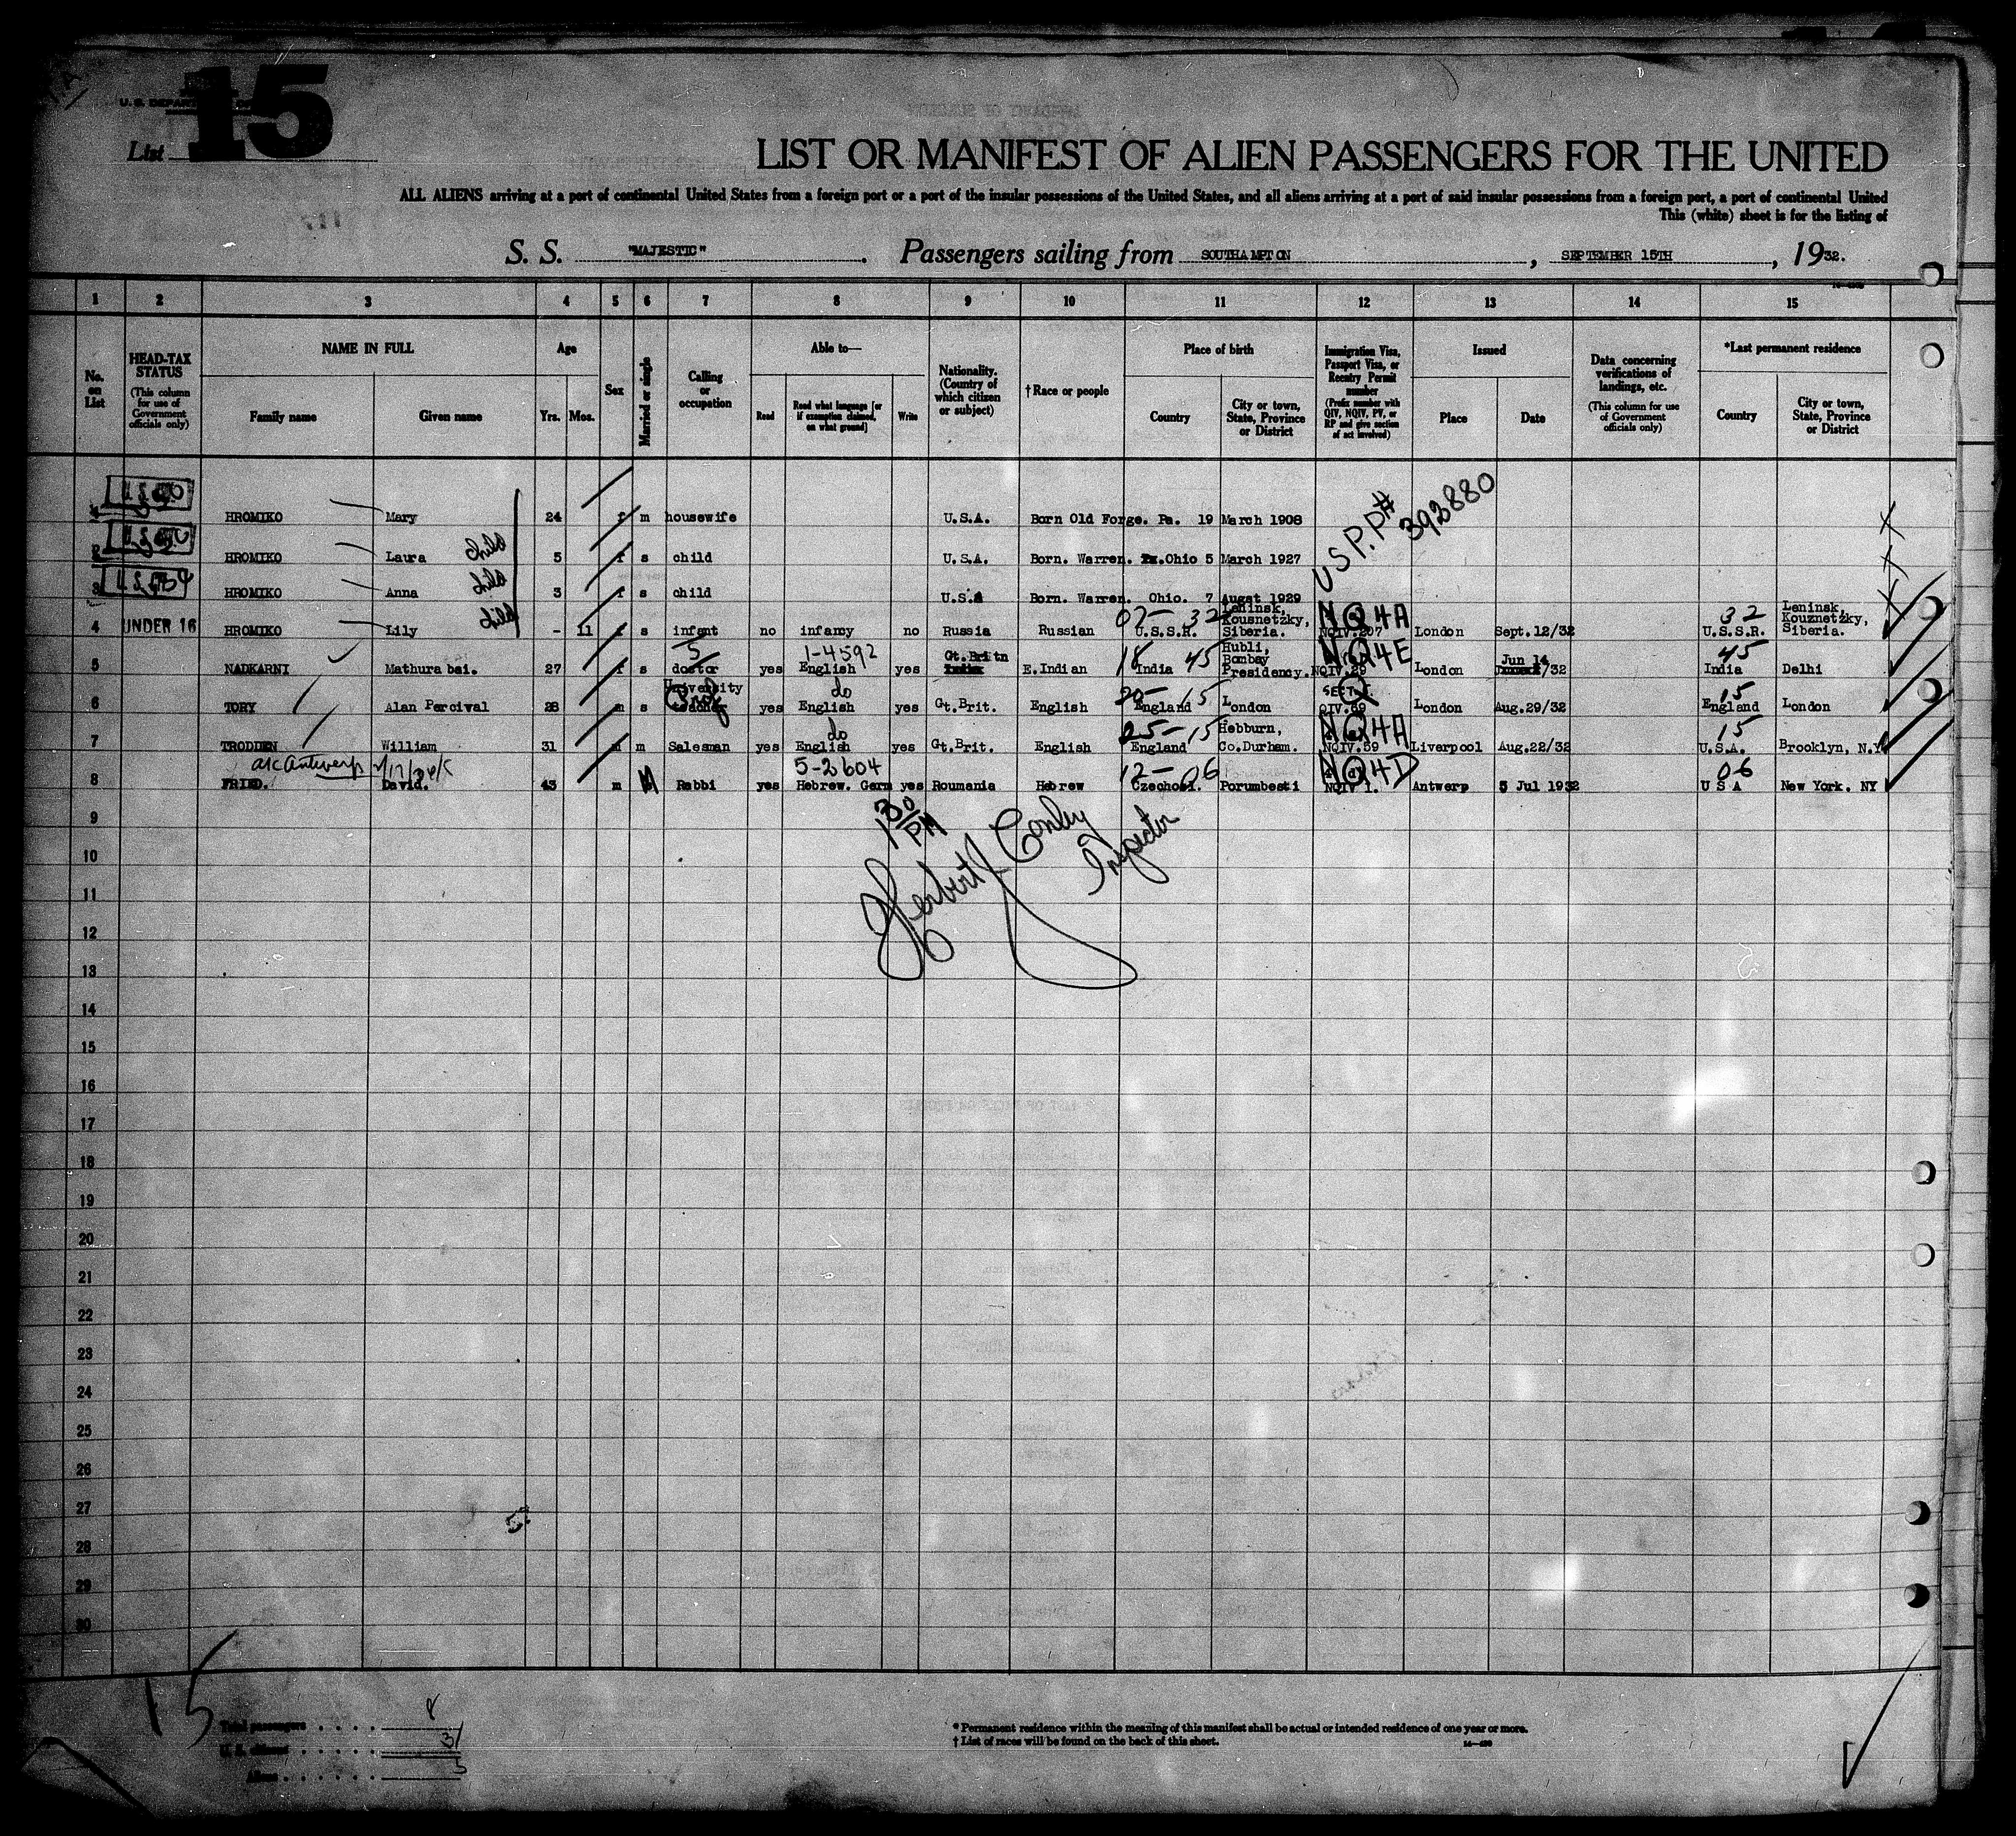 15
U. S. DEPART
List
LIST OR MANIFEST OF ALIEN PASSENGERS FOR THE UNITED
ALL ALIENS arriving at a port of continental United States from a foreign port or a port of the insular possessions of the United States, and all aliens arriving at a port of said insular possessions from a foreign port, a port of continental United
This (white) sheet is for the listing of
S. S. "MAJESTIC". Passengers sailing from SOUTHAMPTON, SEPTEMBER 15TH, 1932.
1 2 3 4 5 6 7 8 9 10 11 12 13 14 15
No. on List
HEAD-TAX STATUS (This column for use of Government officials only)
NAME IN FULL
Family name Given name
Age
Yrs. Mos.
Sex
Married or single
Calling or occupation
Able to—
Read Read what language [or if exemption claimed, on what ground] Write
Nationality. (Country of which citizen or subject)
† Race or people
Place of birth
Country City or town, State, Province or District
Immigration Visa, Passport Visa, or Reentry Permit number (Prefix number with QIV, NQIV, PV, or RP and give section of act involved)
Issued
Place Date
Data concerning verifications of landings, etc. (This column for use of Government officials only)
*Last permanent residence
Country City or town, State, Province or District
U S P.P# 393880
1 HROMIKO Mary 24 f m housewife U.S.A. Born Old Forge. Pa. 19 March 1908
2 HROMIKO Laura child 5 f s child U.S.A. Born. Warren. Ohio 5 March 1927
3 HROMIKO Anna child 3 f s child U.S.A Born. Warren. Ohio. 7 Augst 1929
07- 32 Leninsk, NQ4A 32 Leninsk,
Kousnetzky, Kouznetzky,
4 UNDER 16 HROMIKO Lily child - 11 f s infant no infamcy no Russia Russian U.S.S.R. Siberia. NQIV.207 London Sept.12/32 U.S.S.R. Siberia.
5 1-4592 Gt.Britn 18 45 Hubli, Bombay NQ4E Jun 14 45
5 NADKARNI Mathura bai. 27 f s doctor yes English yes E.Indian India Presidency. NQIV.29 London /32 India Delhi
University Prof do 20- 15 SECT. Q 15
6 TORY Alan Percival 28 m s teacher yes English yes Gt.Brit. English England London QIV.69 London Aug.29/32 England London
do 25-15 Hebburn, NQ4A 15
7 TRODDEN William 31 m m Salesman yes English yes Gt.Brit. English England Co.Durham. NQIV.59 Liverpool Aug.22/32 U.S.A. Brooklyn, N.Y
Antwerp 5-2604 12-06 NQ4D 06
8 FRIED. David. 43 m M Rabbi yes Hebrew. Germ yes Roumania Hebrew Czechosl. Porumbesti NQIV 1. Antwerp 5 Jul 1932 U S A New York. NY
9
1 30/PM
Herbert J Conley
Inspector
10
11
12
13
14
15
16
17
18
19
20
21
22
23
24
25
26
27
28
29
30
15
Total passengers . . . . 8
U. S. citizens . . . . . 3
Aliens . . . . . . 5
* Permanent residence within the meaning of this manifest shall be actual or intended residence of one year or more.
† List of races will be found on the back of this sheet.